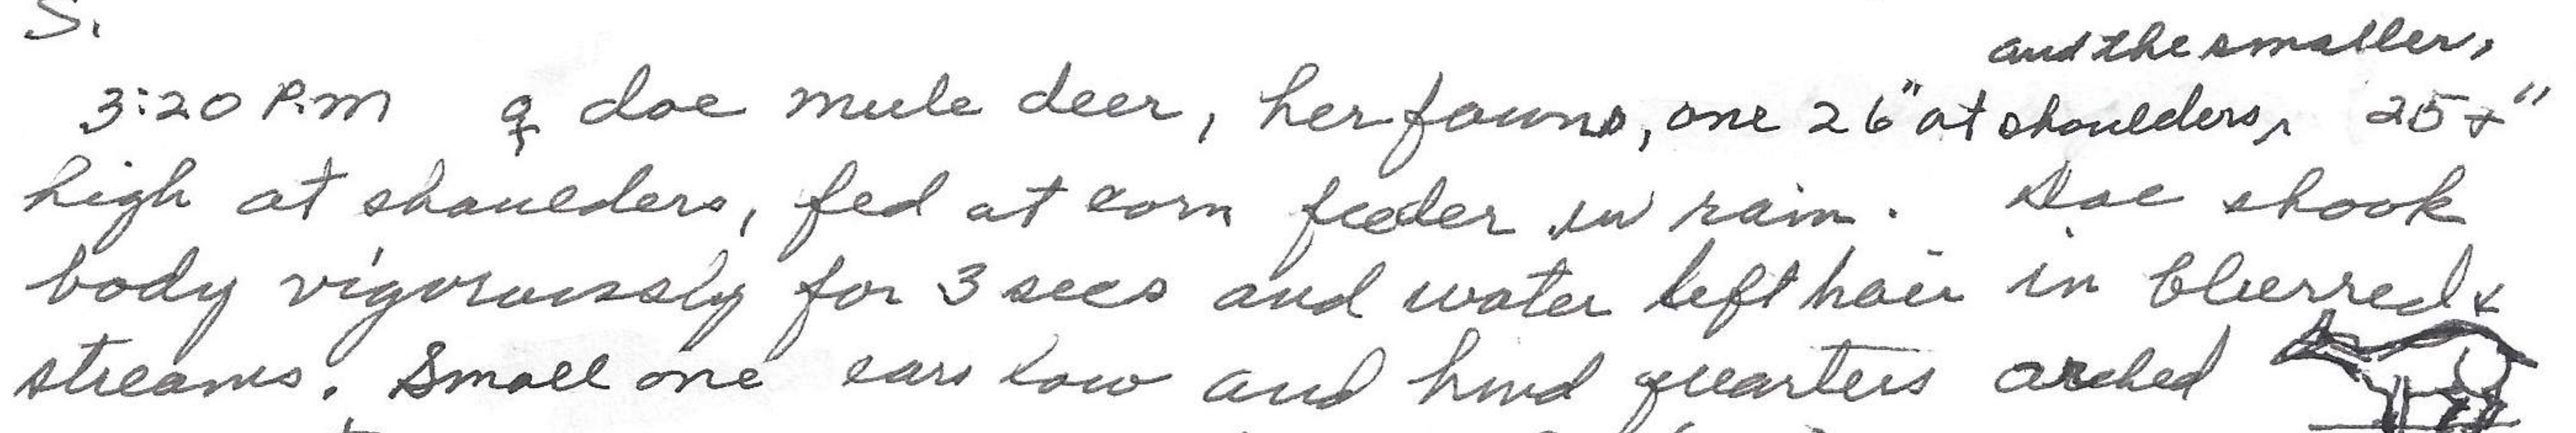 S.
and the smaller,
3:20 P.M ♀ doe mule deer, her fawns, one 26" at shoulders, 25+"
high at shoulders, fed at corn feeder in rain. Doe shook
body vigorously for 3 secs and water left hair in blurred
streams. Small one ears low and hind quarters arched